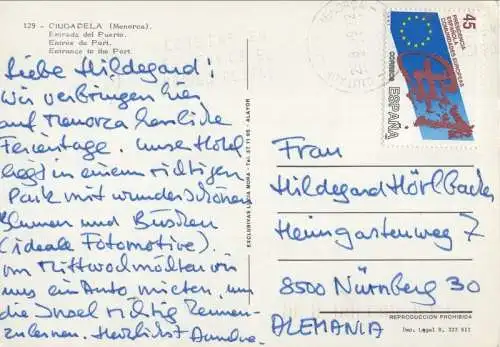 129 - CIUDADELA (Menorca).
Entrada del Puerto.
Entrée du Port.
Entrance to the Port.
Liebe Hildegard!
Wir verbringen hier
auf Menorca herrliche
Ferientage. Unser Hotel
liegt in einem richtigen
Park mit wunderschönen
Blumen und Büschen
(ideale Fotomotive).
Am Mittwoch möchten wir
uns ein Auto mieten, um
die Insel richtig kennen-
zulernen. Herzlichst
EXCLUSIVAS LUCIA MORA - Tel. 37 11 95 - ALAYOR
45
PRESIDENCIA
ESPAÑOLA
COMUNIDADES EUROPEAS
CORREOS ESPAÑA
Frau
Hildegard Hörlbacher
Heimgartenweg 7
8500 Nürnberg 30
ALEMANIA
REPRODUCCION PROHIBIDA
Dep. Legal B.